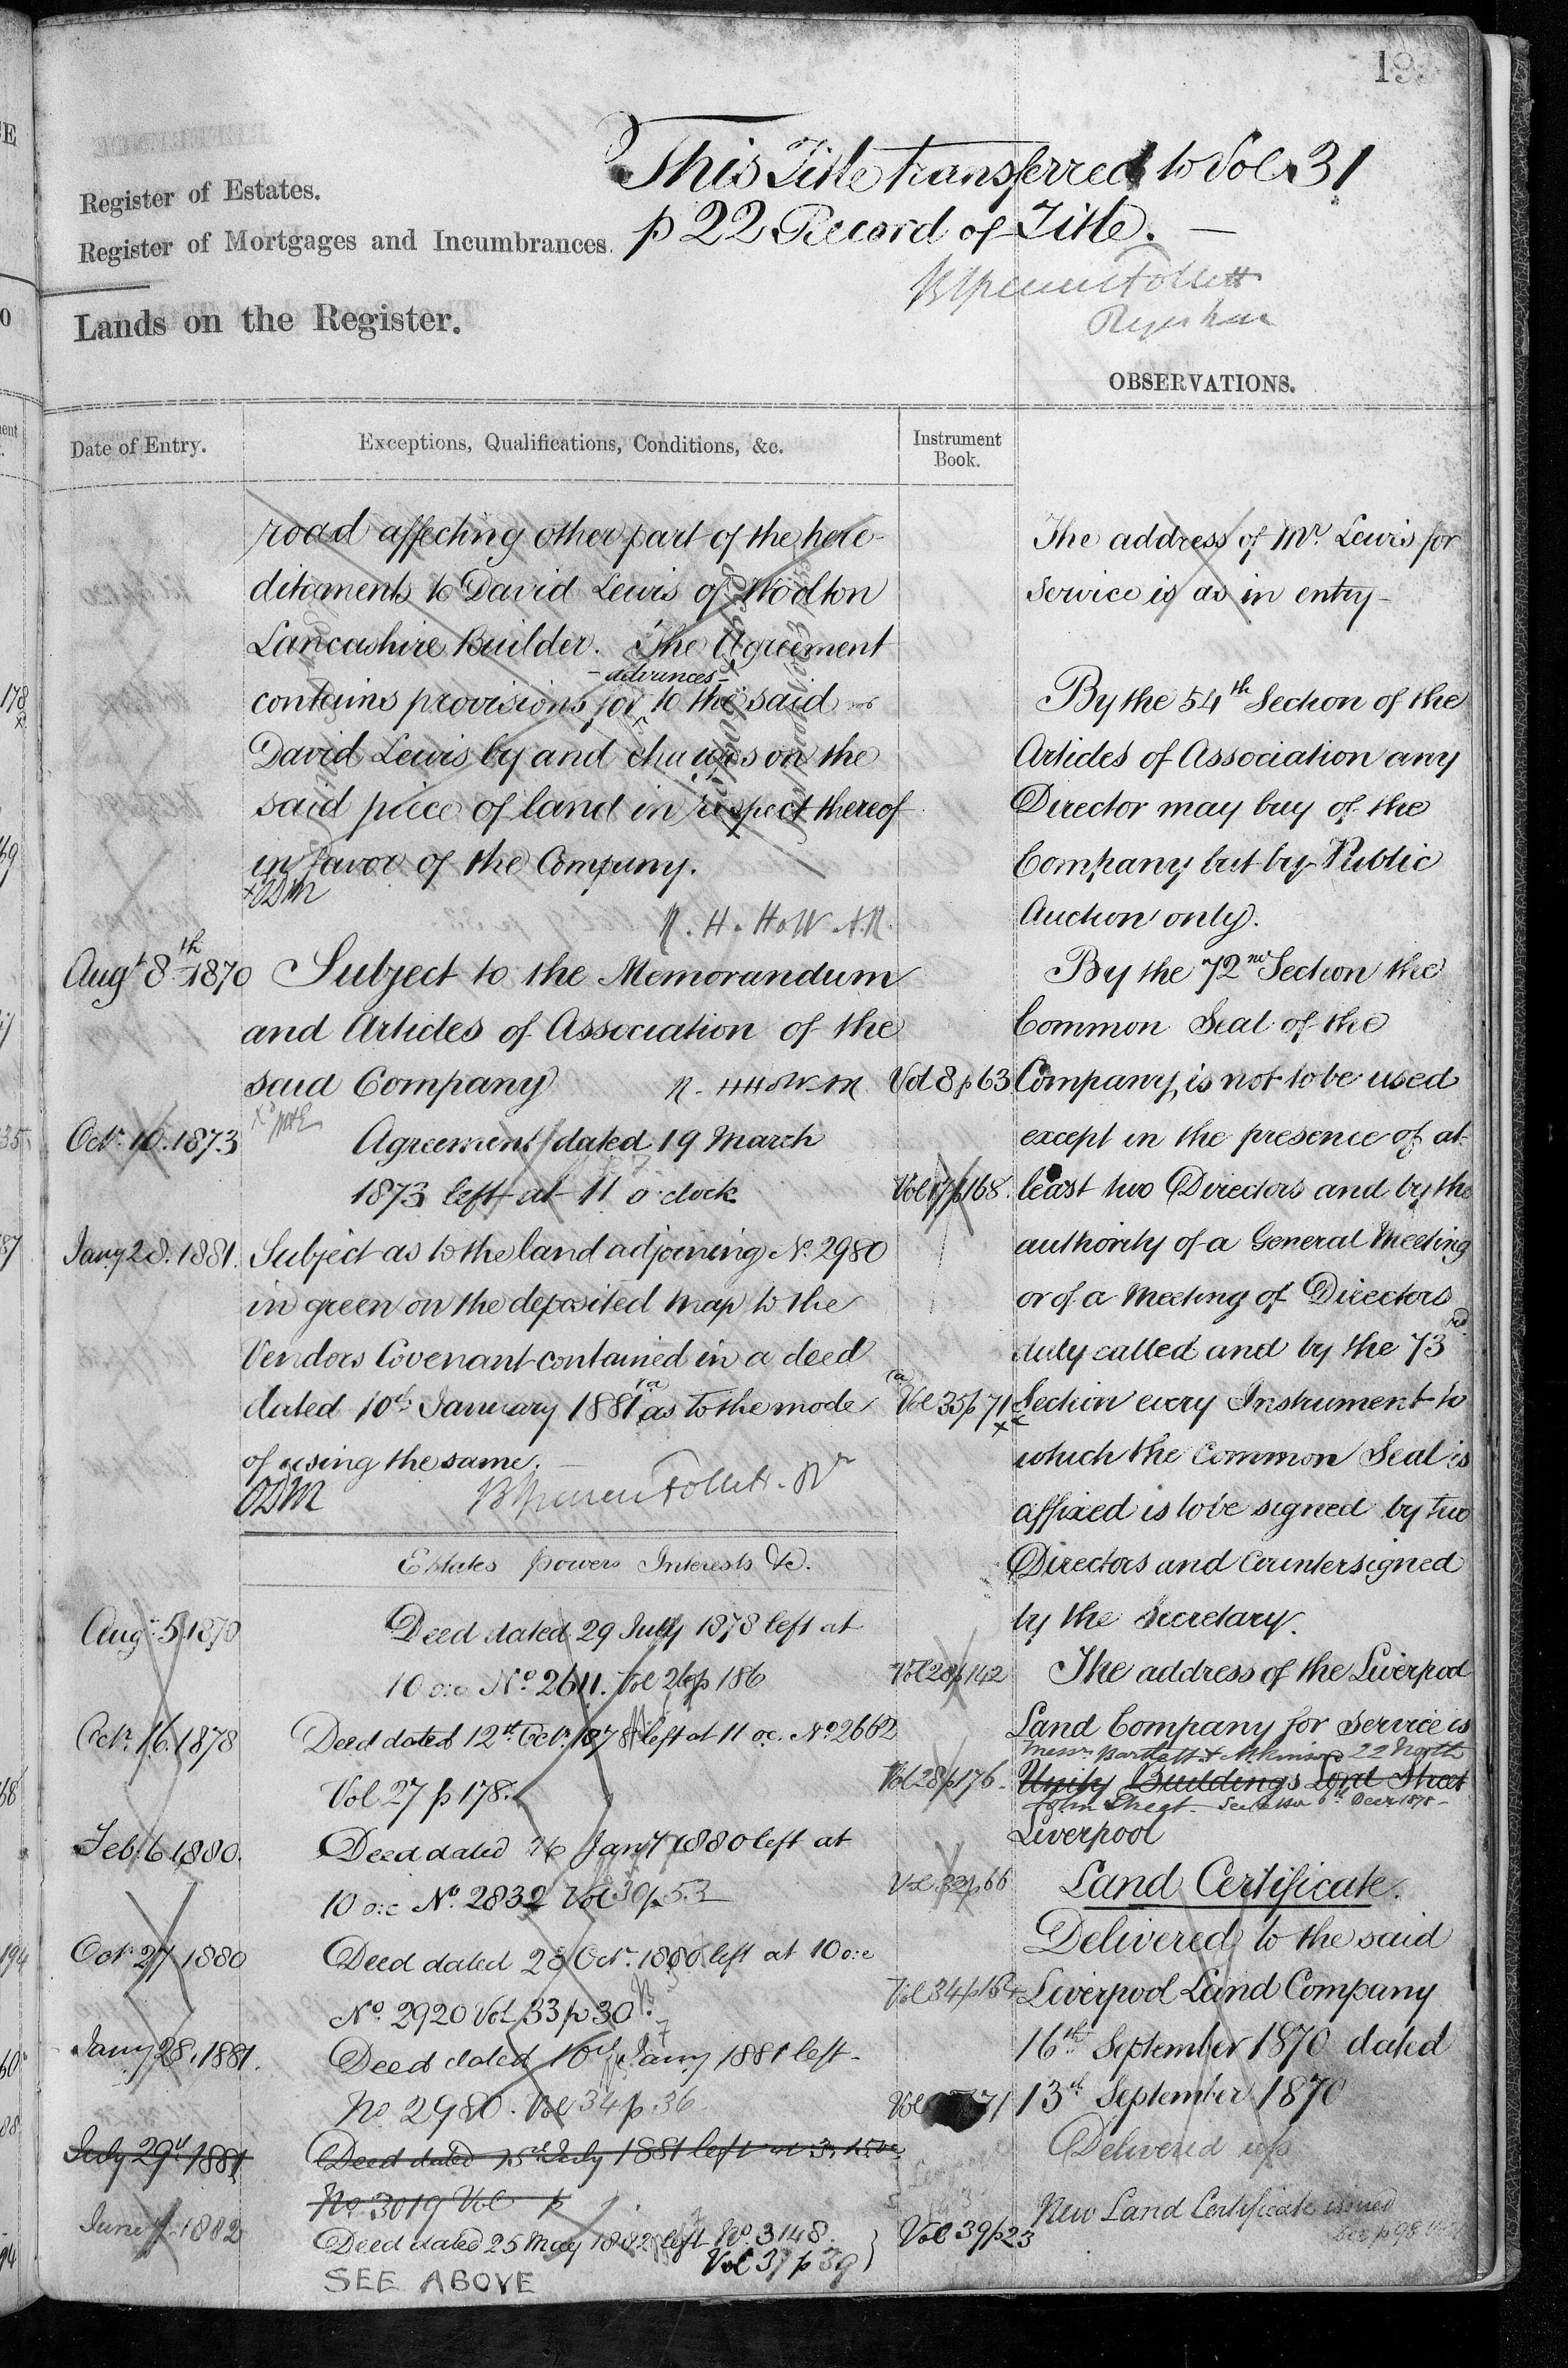 This Title transferred to Vol 31
p 22 Record of Title. —
Register of Estates.
Register of Mortgages and Incumbrances.
Lands on the Register.
OBSERVATIONS.
Date of Entry.
Exceptions, Qualifications, Conditions, &c.
Instrument
Book.
road affecting other part of the here-
ditaments to David Lewis of Woolton
Lancashire Builder. The Agreement
- advances -
contains provisions for to the said
David Lewis by and charges on the
said piece of land in respect thereof
in favor of the Company.
ODM
R. H. HoW. A.R.
Augt 8th 1870 Subject to the Memorandum
and Articles of Association of the
said Company Vol 8 p 63
Octr. 16. 1873 Agreement dated 19 March
1873 left at 11 o'clock Vol 17 p 168.
Jany 28. 1881. Subject as to the land adjoining No. 2980
in green on the deposited map to the
Vendors Covenant contained in a deed
dated 10th January 1881 as to the mode Vol 35 p 71
of using the same. —
ODM
Estates powers Interests &c.
Aug. 5. 1870 Deed dated 29 July 1878 left at
10 o:c No 2611. Vol 26 p 186 Vol 28 p 142
Octr. 16. 1878 Deed dated 12th Octr. 1878 left at 11 oc. No 2662
Vol 27 p 178. Vol 28 p 176.
Feb. 6 1880. Deed dated 26 Jany 1880 left at
10 o:c No. 2832 Vol 30 p 53 Vol 32 p 66
Octr. 27 1880 Deed dated 23 Octr. 1880 left at 10 o:c
No. 2920 Vol 33 p 30. Vol 34 p 154
Jany 28. 1881. Deed dated 10th Jany 1881 left
No 2980. Vol 34 p. 36 Vol 71
July 29th 1881 Deed dated 15th July 1881 left at 3.15 oc
No 3019 Vol p
June 1882 Deed dated 25 May 1882 left No. 3148. Vol 39 p 23
Vol 37 p 39
SEE ABOVE
The address of Mr. Lewis for
service is as in entry -
By the 54th Section of the
Articles of Association any
Director may buy of the
Company but by Public
Auction only.
By the 72nd Section the
Common Seal of the
Company is not to be used
except in the presence of at
least two Directors and by the
authority of a General Meeting
or of a Meeting of Directors
duly called and by the 73rd
Section every Instrument to
which the Common Seal is
affixed is to be signed by two
Directors and Countersigned
by the Secretary.
The address of the Liverpool
Land Company for service is
Messrs Bartlett & Atkinson 22 North
Unity Buildings Lord Street
John Street. 6th Decr 1878 -
Liverpool
Land Certificate.
Delivered to the said
Liverpool Land Company
16th September 1870 dated
13th September 1870
Delivered up
New Land Certificate issued